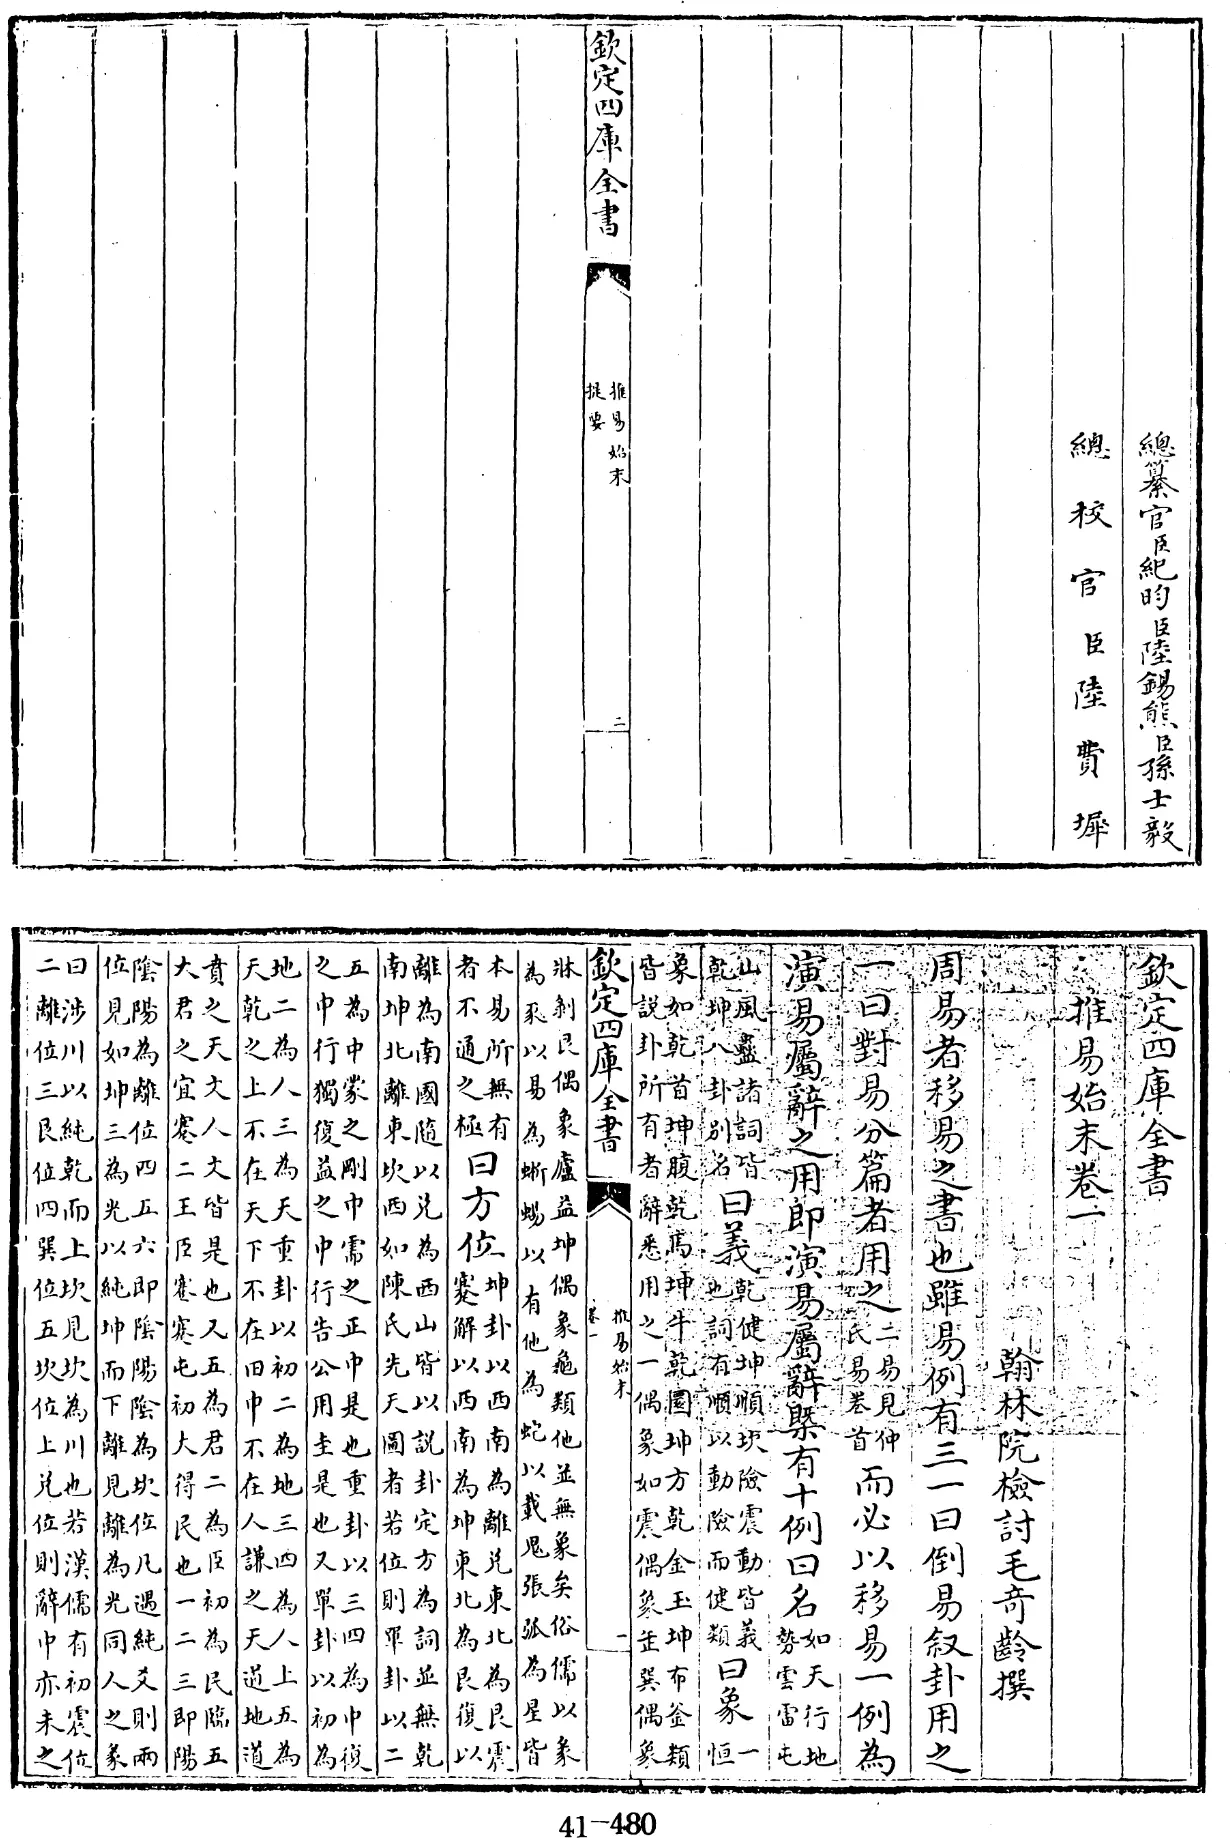 總纂官臣紀昀臣陸錫熊臣孫士毅
總校官臣陸費墀
欽定四庫全書
推易始末
提要
二
欽定四庫全書
推易始末卷一
翰林院檢討毛奇齡撰
周易者移易之書也雖易例有三一曰倒易叙卦用之
一曰對易分篇者用之二易見仲氏易卷首而必以移易一例為
演易屬辭之用即演易屬辭槩有十例曰名如天行地勢雲雷屯
山風蠱諸詞皆乾坤八卦別名曰義乾健坤順坎險震動皆義也詞有順以動險而健類曰象一恒
象如乾首坤腹乾馬坤牛乾圜坤方乾金玉坤布釜類
皆說卦所有者辭悉用之一偶象如震偶象缶巽偶象
欽定四庫全書
推易始末
卷一
一
牀剝艮偶象廬益坤偶象龜類他並無象矣俗儒以象
為豕以易為蜥蜴以有他為蛇以載鬼張弧為星皆
本易所無有者不通之極曰方位坤卦以西南為離兌東北為艮震蹇解以西南為坤東北為艮復以
離為南國隨以兌為西山皆以說卦定方為詞並無乾
南坤北離東坎西如陳氏先天圖者若位則單卦以二
五為中蒙之剛中需之正中是也重卦以三四為中復
之中行獨復益之中行告公用圭是也又單卦以初為
地二為人三為天重卦以初二為地三四為人上五為
天乾之上不在天下不在田中不在人謙之天道地道
賁之天文人文皆是也又五為君二為臣初為民臨五
大君之宜蹇二王臣蹇蹇屯初大得民也一二三即陽
陰陽為離位四五六即陰陽陰為坎位凡遇純爻則兩
位見如坤三為光以純坤而下離見離為光同人之象
曰涉川以純乾而上坎見坎為川也若漢儒有初震位
二離位三艮位四巽位五坎位上兌位則辭中亦未之
41-480